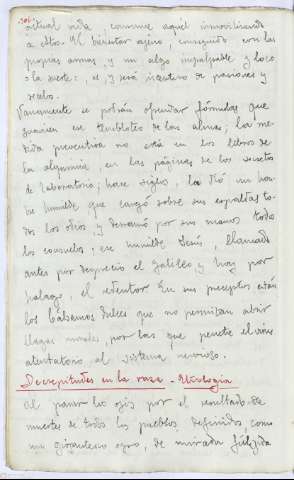 actual vida consume aquel inmovilizado
a otros. El bienestar ajeno, conseguido con las
propias armas, y un algo impalpable y loco
-la suerte:, es, y será incentivo de pasiones y
recelos.
Vanamente se podrán ofrendar fórmulas que
curen ese tembloteo de las almas; la me-
dida preventiva no está en los libros de
la alquimia, en las páginas de los secretos
de Laboratorio; hace siglos, la dió un hom-
bre humilde que cargó sobre sus espaldas to-
dos los odios, y derramó por sus manos todos
los consuelos, ese humilde Jesús, llamado
antes por desprecio el galileo y hoy por
halago, el redentor. En sus preceptos están
los bálsamos dulces que no permitan abrir
llagas morales, por las que penetre el virus
atentatorio al sistema nervioso.
Decrepitudes en la raza - Etiología
Al pasar los ojos por el resultado de
muertes de todos los pueblos definidos, como
un gigantesco ogro, de mirada fúlgida